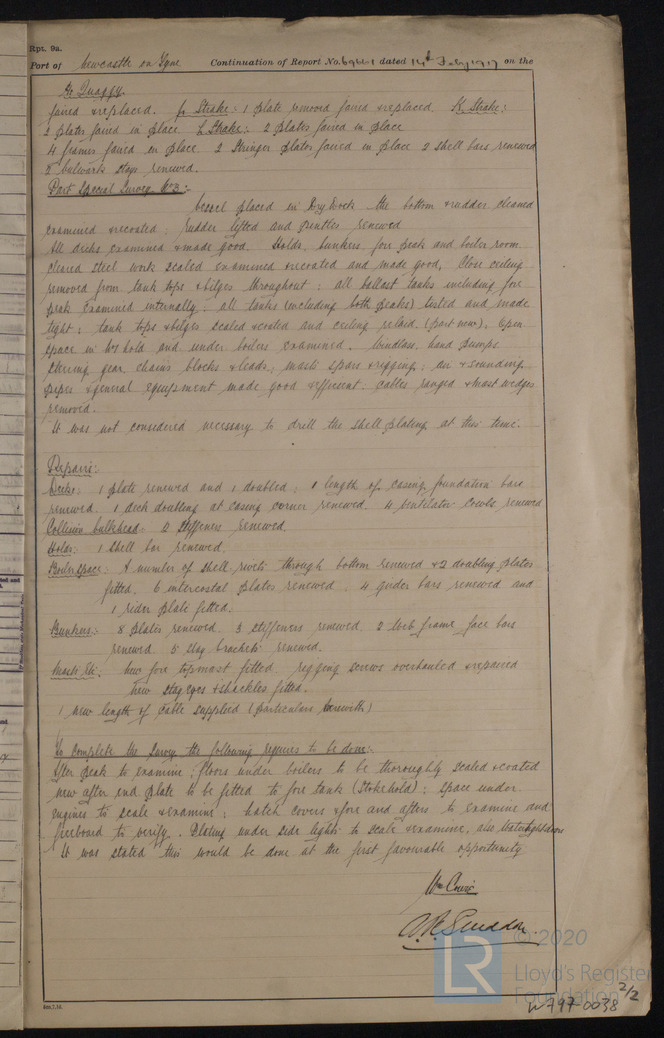 Rpt. 9a.
Port of Newcastle on Tyne Continuation of Report No. 69661 dated 14th July 1917 on the
SS Quaggy.
faired & replaced. Strake: 1 plate removed faired & replaced. K Strake:
2 plates faired in place L Strake: 2 plates faired in place
4 frames faired in place 2 Stringer plates faired in place 2 shell bars renewed
bulwark stays renewed.
Part Special Survey No 3:-
Vessel placed in Dry Dock the bottom & rudder cleaned
examined & recoated; rudder lifted and pintles renewed
All decks examined & made good. Holds, bunkers, fore peak and boiler room
cleared steel work scaled examined & recoated and made good, Close ceiling
removed from tank tops & bilges throughout; all ballast tanks including fore
peak examined internally; all tanks (including both peaks) tested and made
tight; tank tops & bilges scaled & coated and ceiling relaid. (part new). Open
space in hold and under boilers examined. Windlass, hand pumps
steering gear, chains blocks & leads; masts spars & rigging; air & sounding
pipes & general equipment made good & efficient. cables ranged & mast wedges
removed.
It was not considered necessary to drill the shell plating at this time.
Repairs:
Decks: 1 plate renewed and 1 doubled; 1 length of casing foundation bars
renewed. 1 deck doubling at casing corner renewed. 4 ventilator cowls renewed
Collision bulkhead: 2 stiffeners renewed.
Holds: 1 shell bar renewed.
Boiler space: A number of shell rivets through bottom renewed & 2 doubling plates
fitted. 6 intercostal plates renewed. 4 girder bars renewed and
1 rider plate fitted.
Bunkers: 8 plates renewed 3 stiffeners renewed 2 web frame face bars
renewed 5 stay brackets renewed.
Masts Etc. New fore topmast fitted rigging screws overhauled & repaired
New stay eyes & shackles fitted.
1 new length of cable supplied (particulars herewith)
To complete the Survey the following requires to be done:
After peak to examine; floors under boilers to be thoroughly scaled & coated
new after end plate to be fitted to fore tank (Stokehold); space under
engines to scale & examine; hatch covers & fore and afters to examine and
freeboard to verify. Plating under side lights to scale & examine, also watertight doors
It was stated this would be done at the first favourable opportunity
A.R. Sneddon.
© 2020
LR
Lloyd's Register
Foundation
W797-0038 2/2